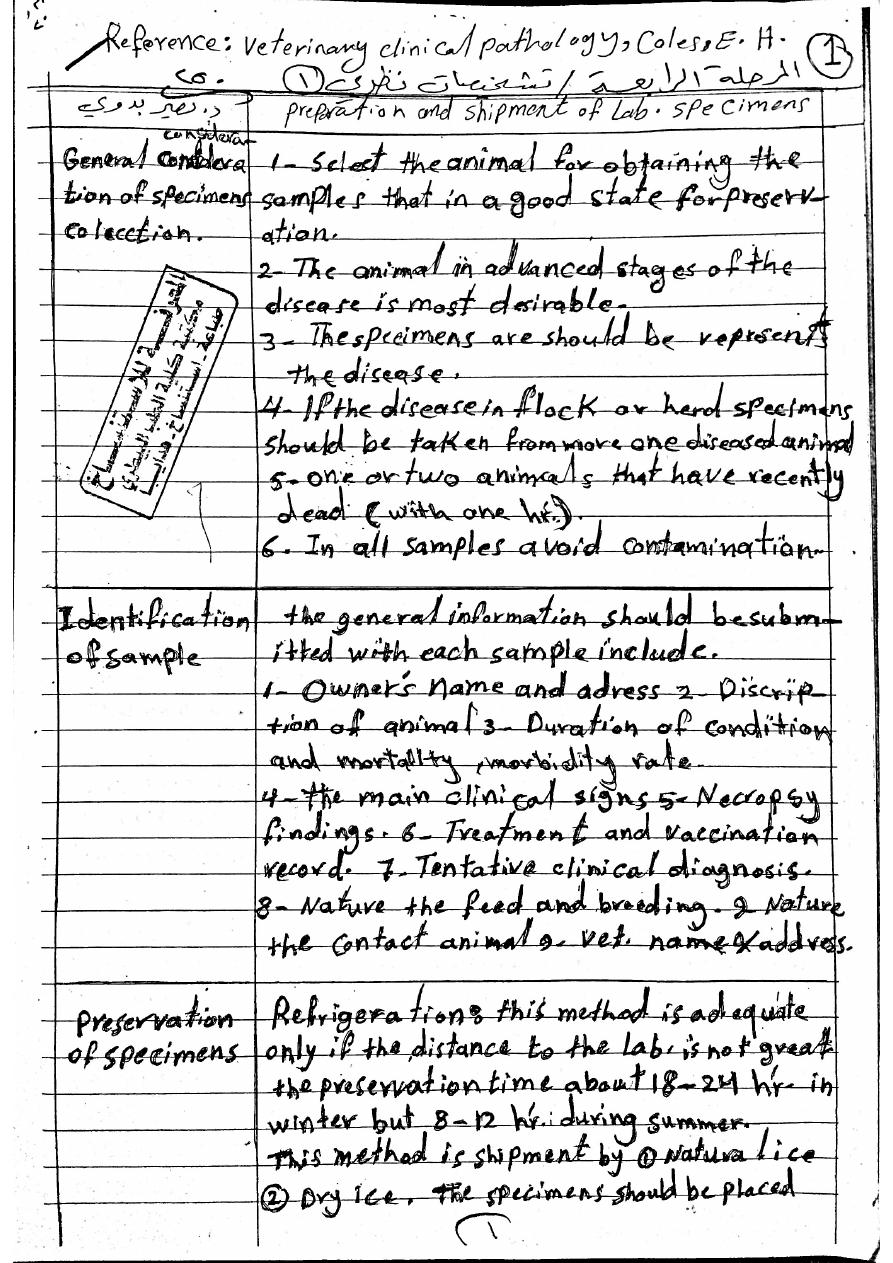 Reference: Veterinary clinical pathology, Coles, E. H.
1
المرحلة الرابعة / تشخيصات نظري ①
د. نصير بدوي
prepration and shipment of Lab. specimens
considera
General
tion of specimens
colecction.
1- Select the animal for obtaining the
samples that in a good state for preserv-
ation.
2- The animal in advanced stages of the
disease is most desirable.
3- The specimens are should be represents
the disease.
4- If the disease in flock or herd specimens
should be taken from more one diseased animal
5- one or two animals that have recently
dead (with one hr.).
6. In all samples avoid contamination.
Identification
of sample
the general information should be subm-
itted with each sample include.
1- Owner's Name and adress 2- Discrip-
tion of animal 3- Duration of condition
and mortality, morbidity rate.
4- the main clinical signs 5- Necropsy
findings. 6- Treatment and vaccination
record. 7- Tentative clinical diagnosis.
8- Nature the feed and breeding. 9 Nature
the contact animal 9- vet. name & address.
preservation
of specimens
Refrigeration: this method is adequate
only if the distance to the lab. is not great
the preservation time about 18-24 hr. in
winter but 8-12 hr. during summer.
This method is shipment by ① Natural ice
② Dry ice. The specimens should be placed
1